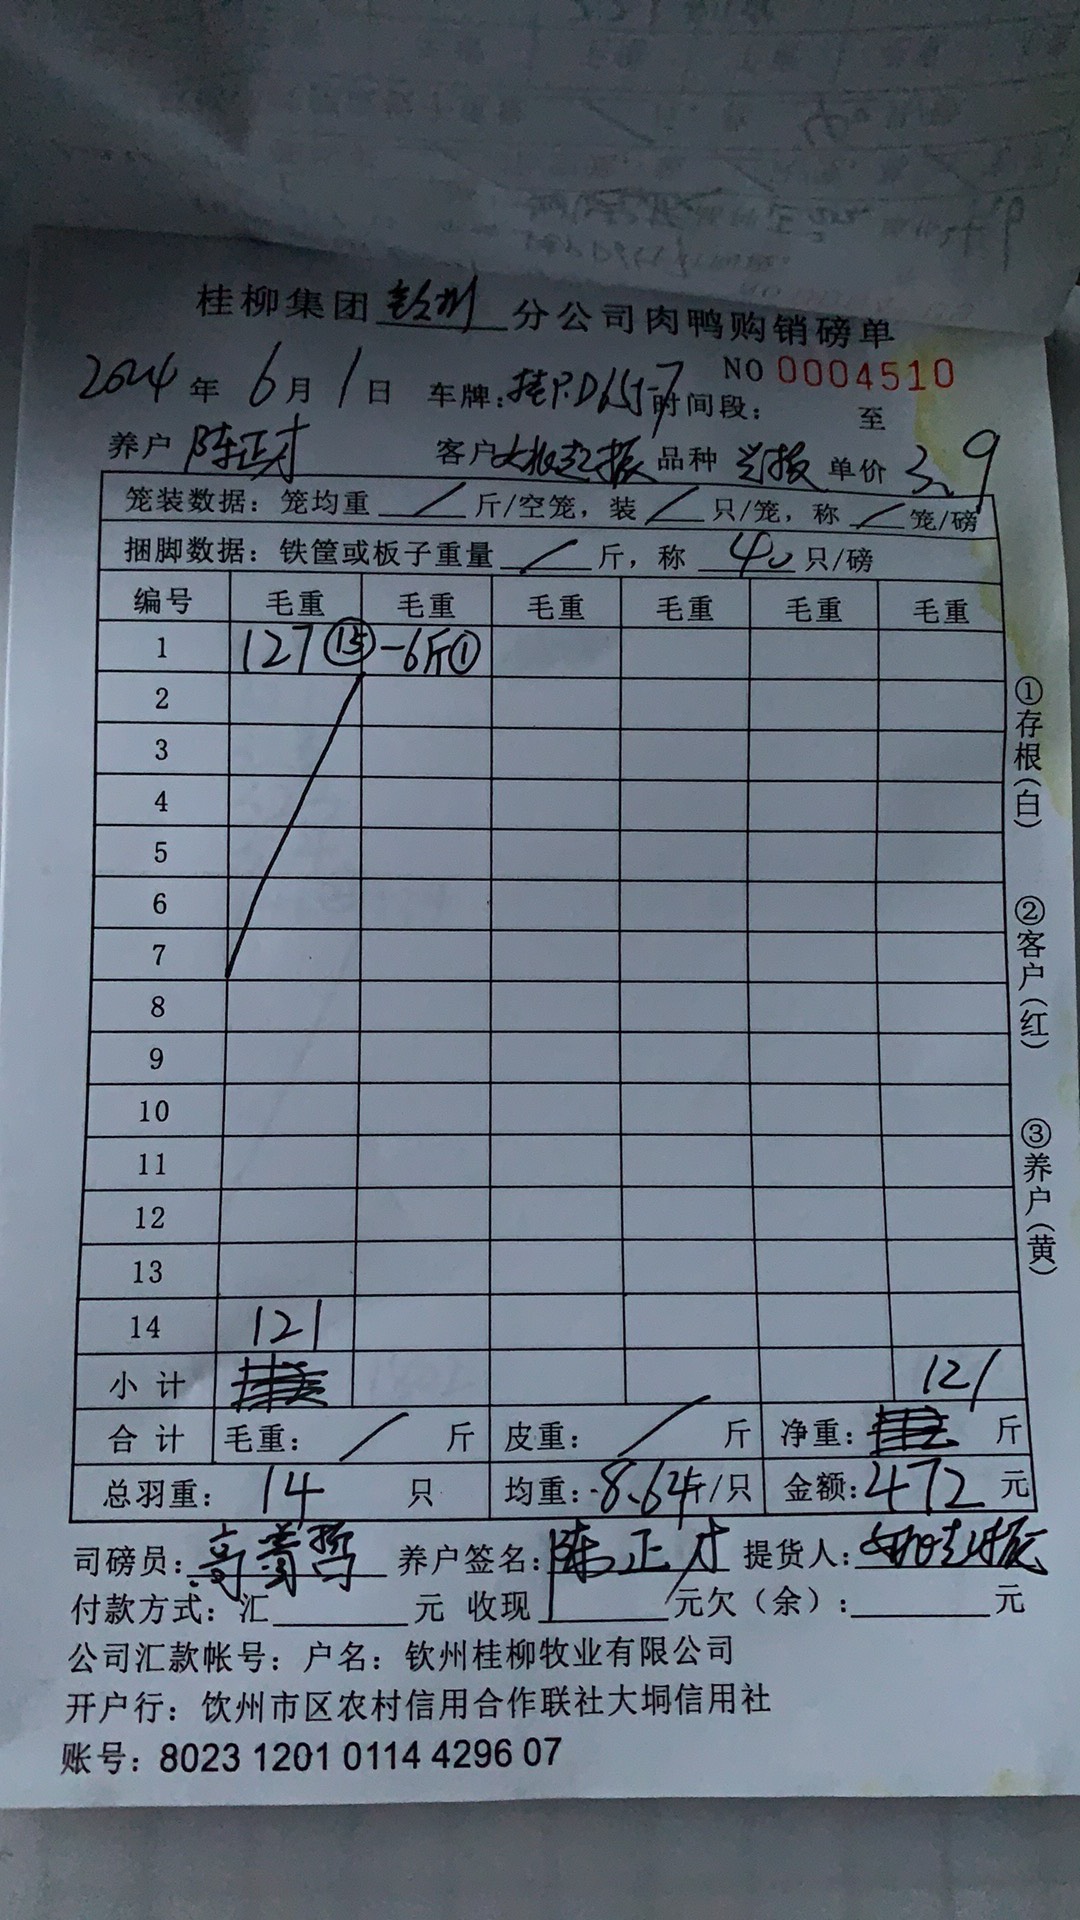 桂柳集团钦州分公司肉鸭购销磅单
NO 0004510
2024年6月1日 车牌:桂P.D65J-7 时间段: 至
养户 陈正才 客户 品种 单价 3.9
笼装数据:笼均重 / 斤/空笼,装 / 只/笼,称 / 笼/磅
捆脚数据:铁筐或板子重量 / 斤,称 40 只/磅
编号 毛重 毛重 毛重 毛重 毛重 毛重
1 127⑮ -6斤①
2
3
4
5
6
7
8
9
10
11
12
13
14 121
小计 121
合计 毛重: / 斤 皮重: / 斤 净重: 斤
总羽重: 14 只 均重:8.64斤/只 金额:472元
司磅员: 养户签名:陈正才 提货人:
付款方式:汇 元 收现 元欠(余): 元
公司汇款帐号:户名:钦州桂柳牧业有限公司
开户行:钦州市区农村信用合作联社大垌信用社
账号:8023 1201 0114 4296 07
①存根(白)
②客户(红)
③养户(黄)